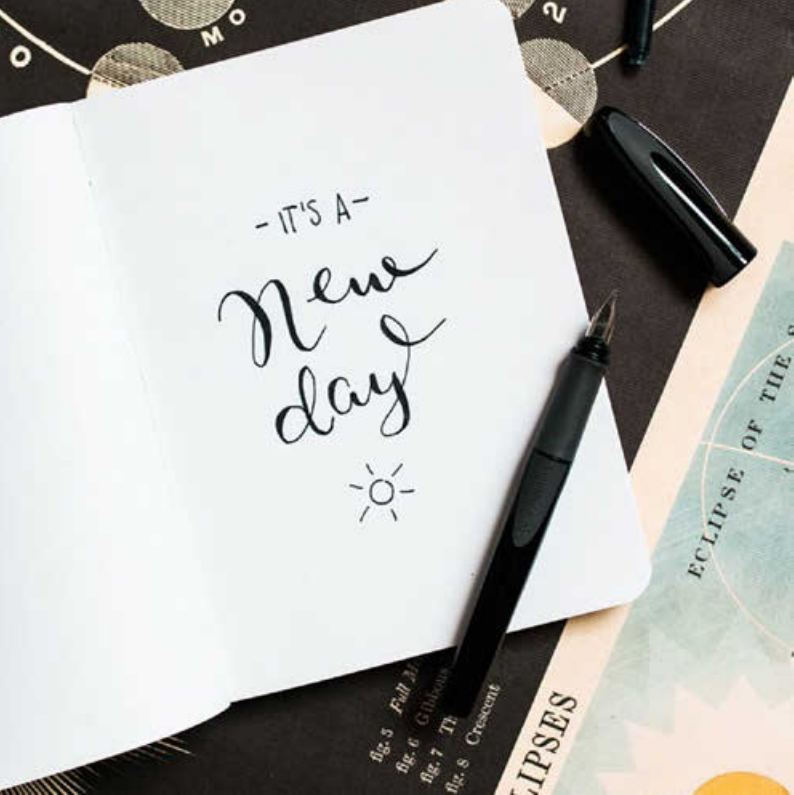 - IT'S A -
New
day
ECLIPSE OF THE S
fig. 5 Full M
fig. 6 Gibbous
fig. 7 Th
fig. 8 Crescent
LIPSES
MO
O
2